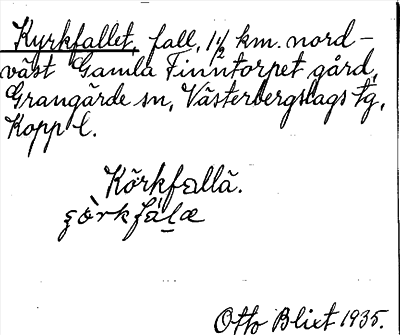 Kyrkfallet, fall, 1½ km. nord-
väst Gamla Finntorpet gård,
Grangärde sn, Västerbergslags tg,
Kopp l.
Körkfallä.
ʂòrkfálæ
Otto Blixt 1935.